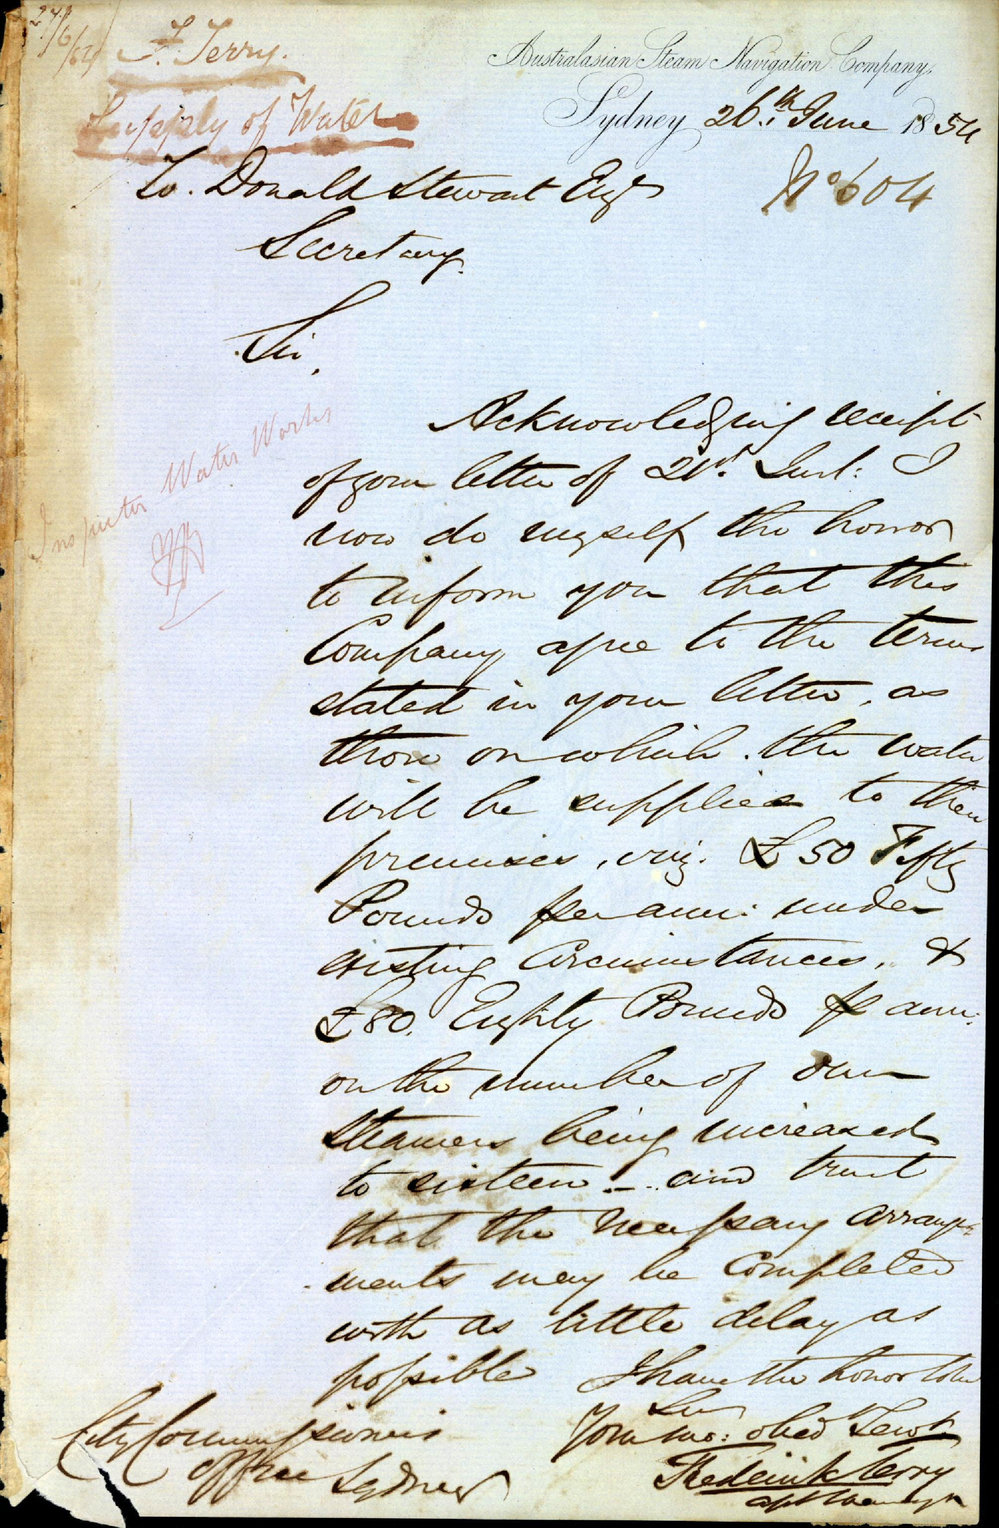 27/6/54
F. Terry.
Supply of Water
Australasian Steam Navigation Company,
Sydney 26.th June 1854
No 604
To. Donald Stewart Esqr
Secretary.
Sir,
Inspector Water Works
Acknowledging receipt
of your letter of 21st. Inst: I
now do myself the honor
to inform you that this
Company agree to the terms
stated in your letter, as
those on which the water
will be supplied to their
premises, viz. £50 Fifty
Pounds per ann: under
existing Circumstances, &
£80. Eighty Pounds per ann:
on the number of our
steamers being increased
to sixteen - and trust
that the necessary arrange-
ments may be Completed
with as little delay as
possible I have the honor to be
Sir
Your mo: obed Servt
Frederick Terry
City Commissioners
office Sydney